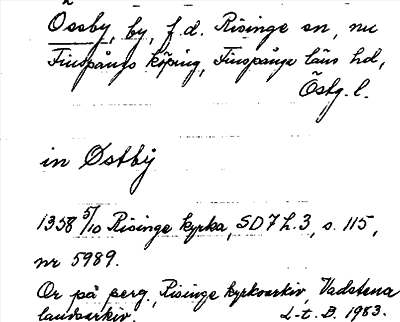 Össby, by, f.d. Risinge sn, nu
Finspångs köping, Finspånga läns hd,
Östg. l.
in Østbÿ
1358 5/10 Risinge kyrka, SD 7 h. 3, s. 115,
nr 5989.
Or på perg., Risinge kyrkoarkiv, Vadstena
landsarkiv. L-t. B. 1983.